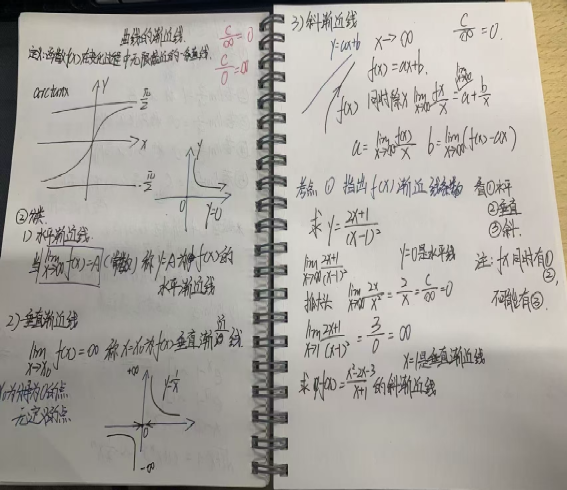 曲线的渐近线
C/∞=0
定义:函数f(x)在变化过程中无限接近的一条直线.
C/0=∞
arctanx
Y
π/2
X
-π/2
Y
0
Y=0
②分类
1) 水平渐近线
当 lim x→∞ f(x)=A (常数) 称 y=A为f(x)的
水平渐近线
2) 垂直渐近线
lim x→x₀ f(x)=∞ 称 x=x₀为f(x)垂直渐近线
x₀为分母为0的点
无定义的点
+∞
y=1/x
0
-∞
3) 斜渐近线
C/∞=0.
y=ax+b x→∞
f(x)=ax+b.
f(x) 同时除x lim x→∞ f(x)/x = a+b/x
a=lim x→∞ f(x)/x b=lim x→∞ (f(x)-ax)
考点 ① 指出f(x)渐近线条数 看①水平
②垂直
③斜.
求 y=2x+1/(x-1)²
lim x→∞ 2x+1/(x-1)² y=0是水平线
注: fx同时有①
②,
不可能有③.
抓大头 lim x→∞ 2x/x² = 2/x = C/∞ =0
lim x→1 2x+1/(x-1)² = 3/0 = ∞
x=1是垂直渐近线
求 f(x)=x²-2x-3/x+1 的斜渐近线